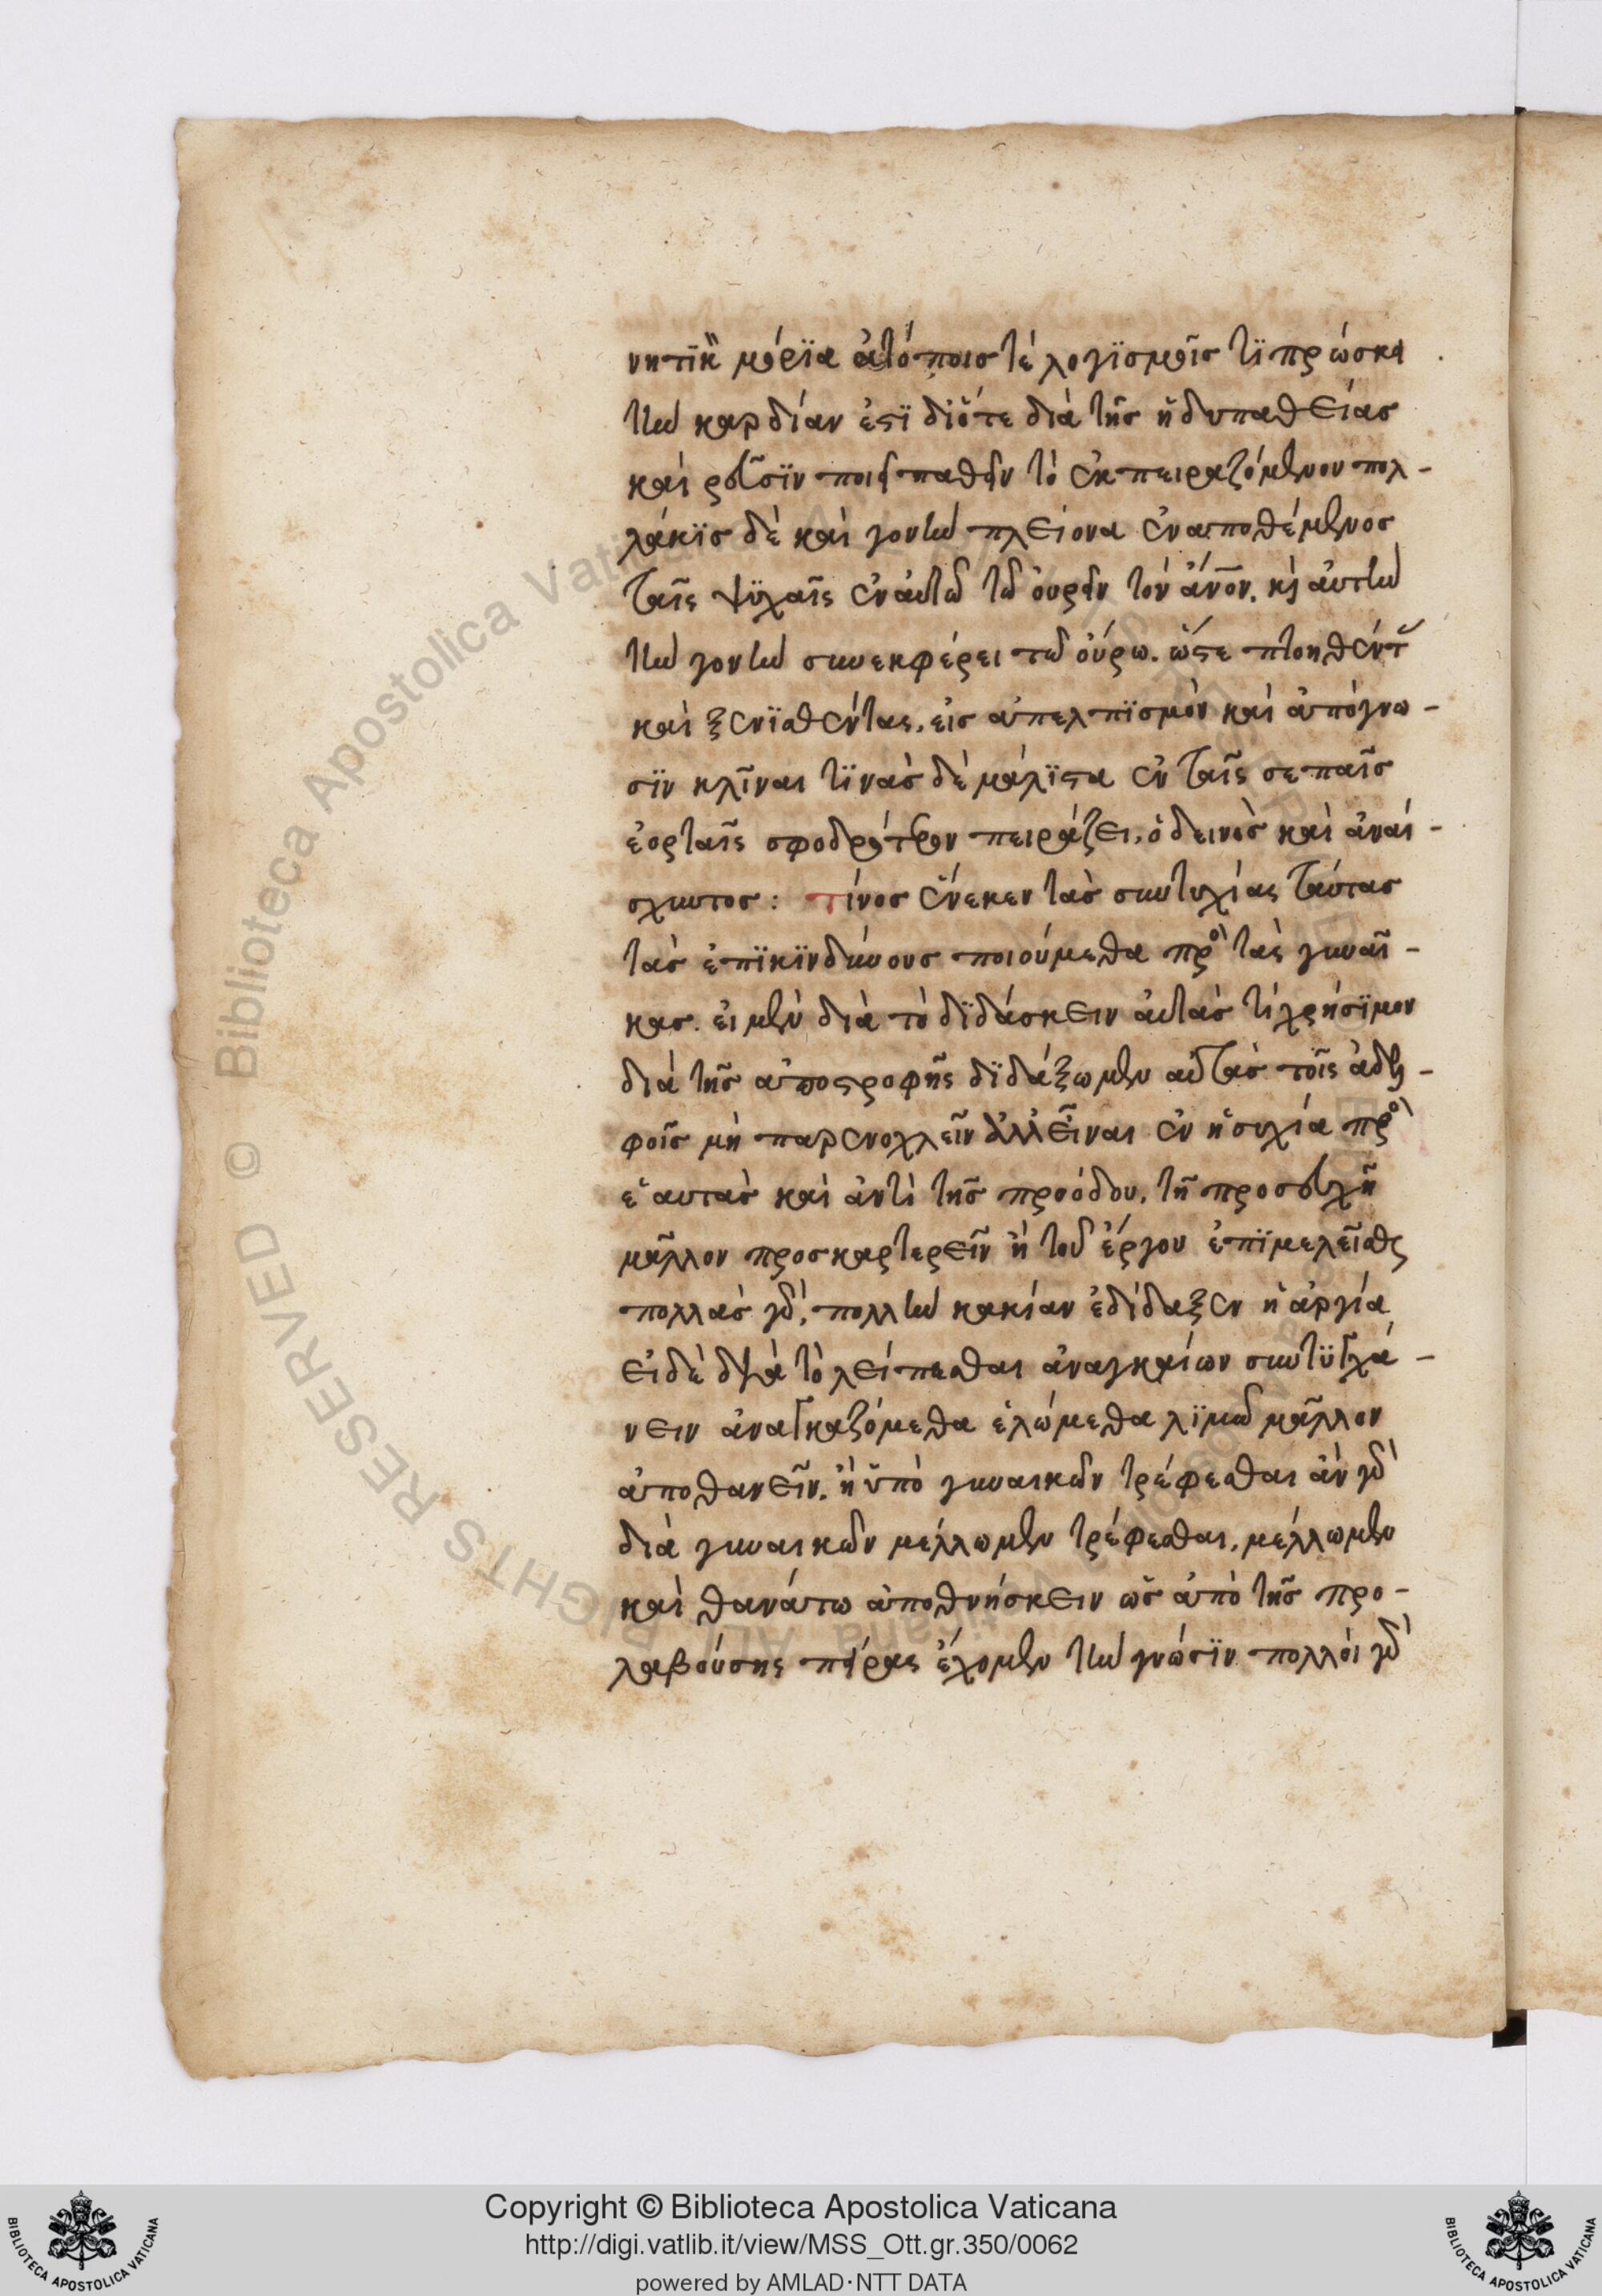 νητικὰ μόρϊα ἀτόποις τὲ λογϊσμοῖς τϊπρώσκει
τὴν καρδίαν ἐστϊ δἰότε διὰ τῆς ἡδυπαθείας
καὶ ῥεῦσϊν ποιεῖ παθεῖν τὸ ἐκπειραζόμενον πολ-
λάκϊς δὲ καὶ γονὴν πλείονα ἐναποθέμενος
ταῖς ψϋχαῖς ἐν αὐτῶ τῶ οὐρεῖν τὸν ἄνον. κὶ αὐτὴν
τὴν γονὴν συνεκφέρει τῶ οὔρω. ὥστε πτοηθέντ
καὶ ξενϊσθέντας, εἰς ἀπελπϊσμὸν καὶ ἀπόγνω-
σϊν κλῖναι τϊνὰς δὲ μάλϊστα ἐν ταῖς σεπταῖς
ἑορταῖς σφοδρότερον πειράζει, ὁ δεινὸς καὶ ἀναί-
σχυντος: τίνος ἕνεκεν τὰς συντυχίας ταύτας
τὰς ἐπϊκϊνδύνους ποιούμεθα πρὸ τὰς γυναῖ-
κας. εἰ μὲν διὰ τὸ δϊδάσκειν αὐτὰς τί χρήσϊμον
διὰ τῆς ἀποστροφῆς δϊδάξωμεν αὐτὰς τοῖς ἀδελ-
φοῖς μὴ παρενοχλεῖν ἀλλεἶναι ἐν ἡσυχία πρὸ
ἑαυτὰς καὶ ἀντὶ τῆς προόδου, τῆ προσευχῆ
μᾶλλον προσκαρτερεῖν ἢ τοῦ ἔργου ἐπϊμελεῖσθαι
πολλὰς γὰρ, πολλὴν κακίαν ἐδίδαξεν ἡ ἀργία
εἰ δὲ διὰ τὸ λείπεσθαι ἀναγκαίων συντϋγχά-
νειν ἀναγκαζόμεθα ἑλώμεθα λϊμῶ μᾶλλον
ἀποθανεῖν. ἢ ὑπὸ γυναικῶν τρέφεσθαι ἂν γὰρ
διὰ γυναικῶν μέλλωμεν τρέφεσθαι, μέλλωμεν
καὶ θανάτω ἀποθνήσκειν ὡς ἀπὸ τῆς προ-
λαβούσης πείρας ἔχομεν τὴν γνώσϊν πολλοὶ γὰρ
Copyright © Biblioteca Apostolica Vaticana
http://digi.vatlib.it/view/MSS_Ott.gr.350/0062
powered by AMLAD·NTT DATA